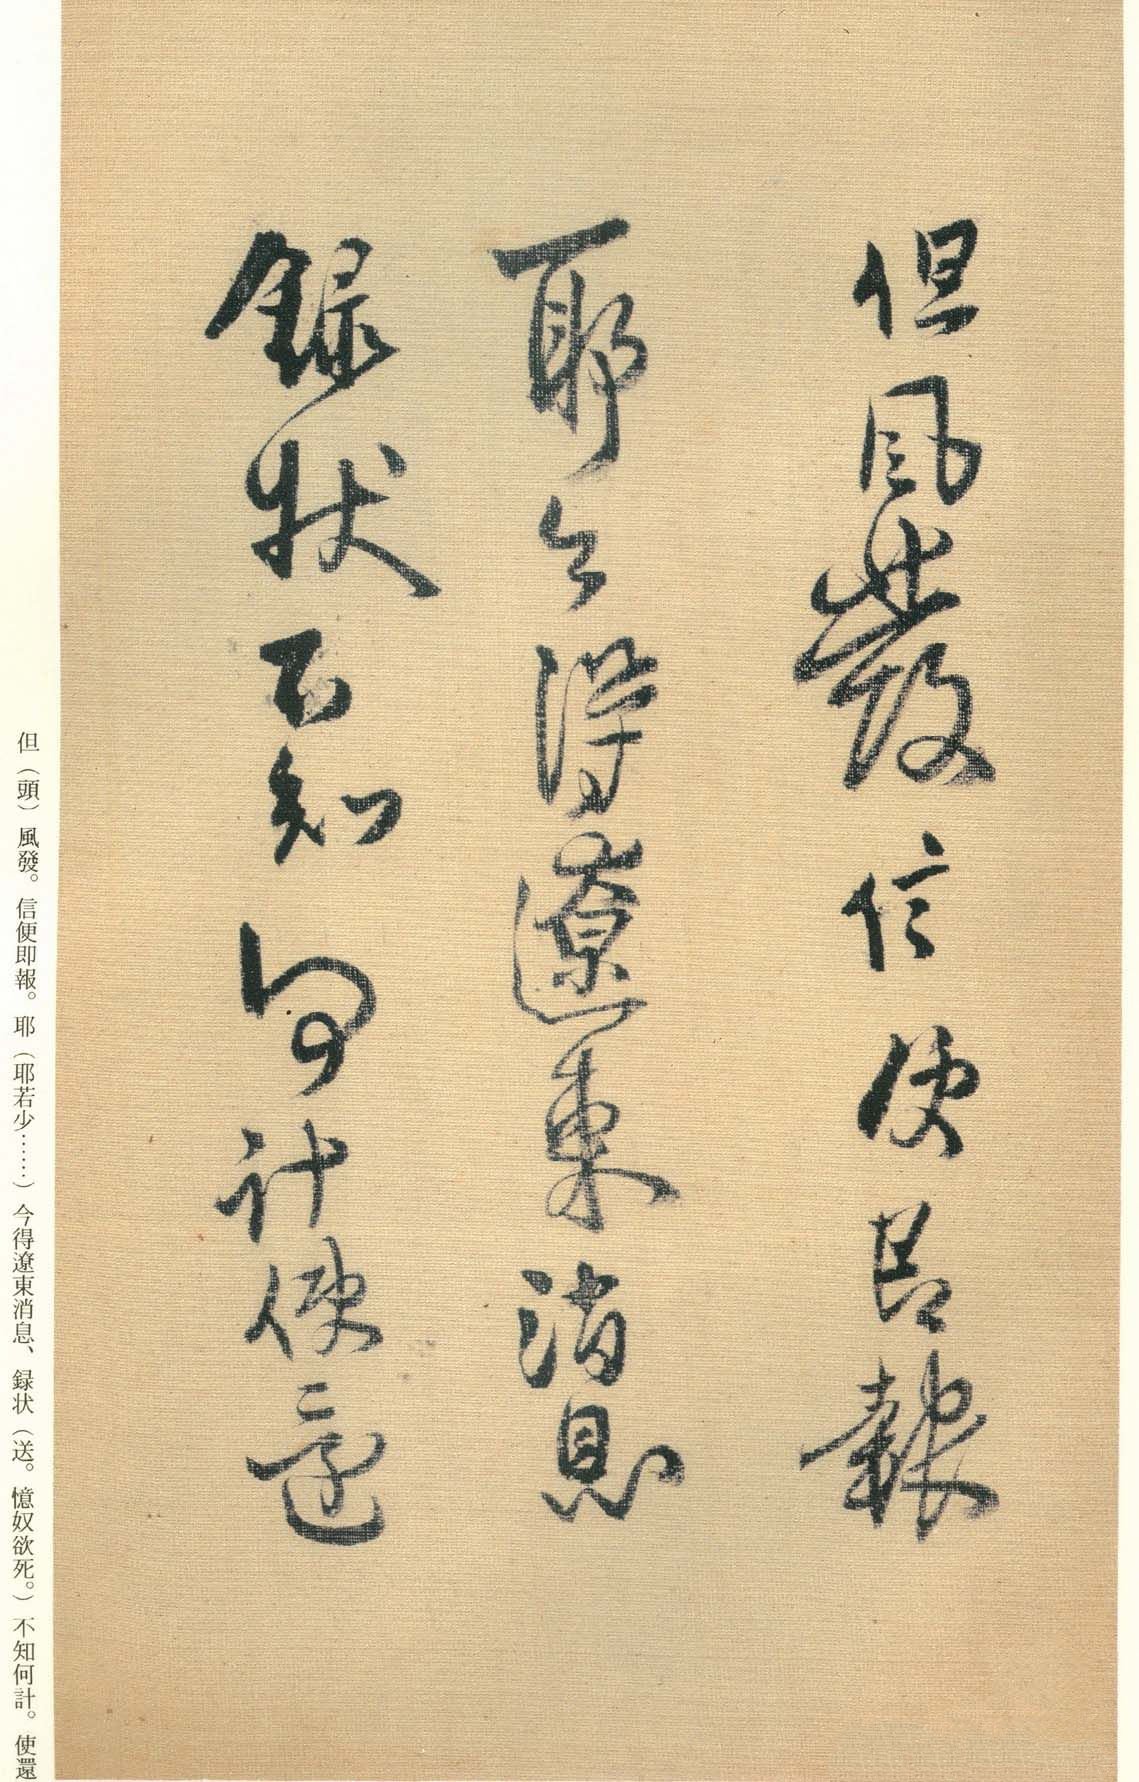 但風發信便即報
耶今得遼東消息
録狀不知何計使還
但（頭）風發。信便即報。耶（耶若少……）今得遼東消息、録状（送。憶奴欲死。）不知何計。使還